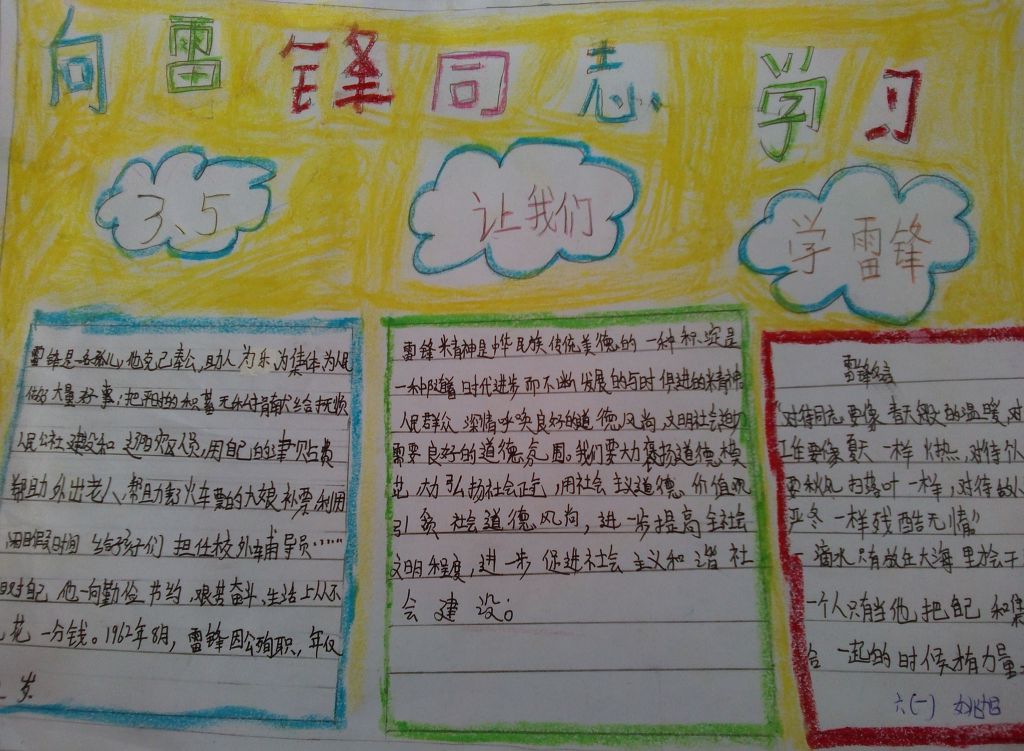 向雷锋同志学习
3、5
让我们
学雷锋
雷锋是一名孤儿,他克己奉公,助人为乐,为集体为人民
做好大量好事:把平时的积蓄无私付
人民公社建设和辽阳灾区人员,用自己的津贴费
帮助外出老人、帮助丢火车票的大娘补票,利用
闲日假时间给孩子们担任校外辅导员……
对自己他一向勤俭节约,艰苦奋斗、生活上从不
花一分钱。1962年8月,雷锋因公殉职,年仅
岁
雷锋精神是中华民族传统美德的一种积淀是
一种随着时代进步而不断发展的与时俱进的精神
人民群众深情呼唤良好的道德风尚,文明社会迫切
需要良好的道德氛围。我们要大力褒扬道德模
范,大力弘扬社会正气,用社会主义道德价值观
引领社会道德风尚,进一步提高全社会
文明程度,进一步促进社会主义和谐社
会建设。
雷锋名言
“对待同志要像春天般的温暖,对
工作要像夏天一样火热,对待
要秋风扫落叶一样,对待敌人
严冬一样残酷无情”
一滴水只有放在大海里才会干
一个人只有当他把自己和集
合一起的时候才有力量
六(一)